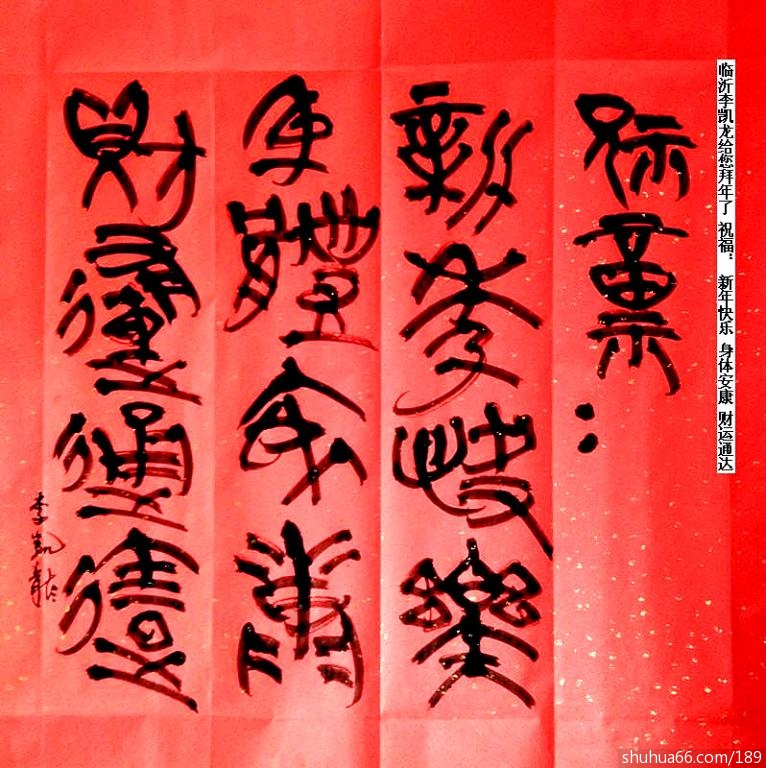 临沂李凯龙给您拜年了 祝福： 新年快乐 身体安康 财运通达
祝福：
新年快樂
身體安康
財運通達
李凱龍
shuhua66.com/189